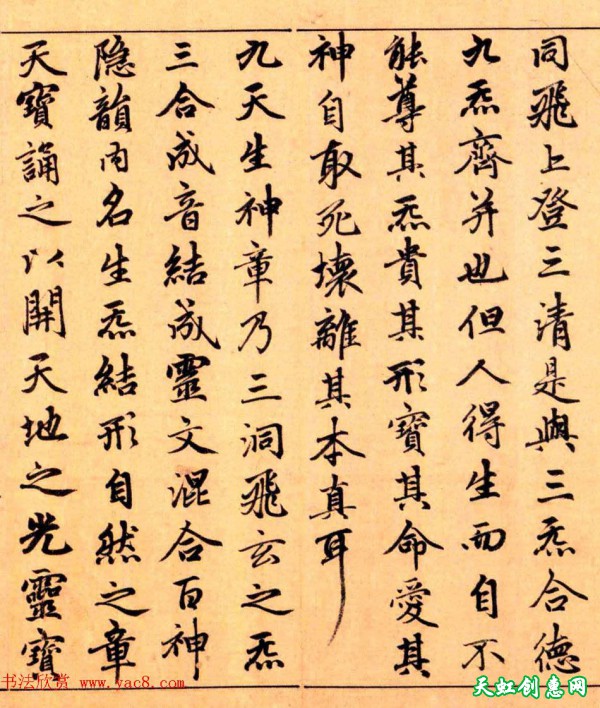 同飛上登三清是與三炁合德
九炁齊并也但人得生而自不
能尊其炁貴其形寶其命愛其
神自取死壞離其本真耳
九天生神章乃三洞飛玄之炁
三合成音結成靈文混合百神
隠韻內名生炁結形自然之章
天寶誦之以開天地之光靈寶
书法欣赏 www.yac8.com
天虹创惠网